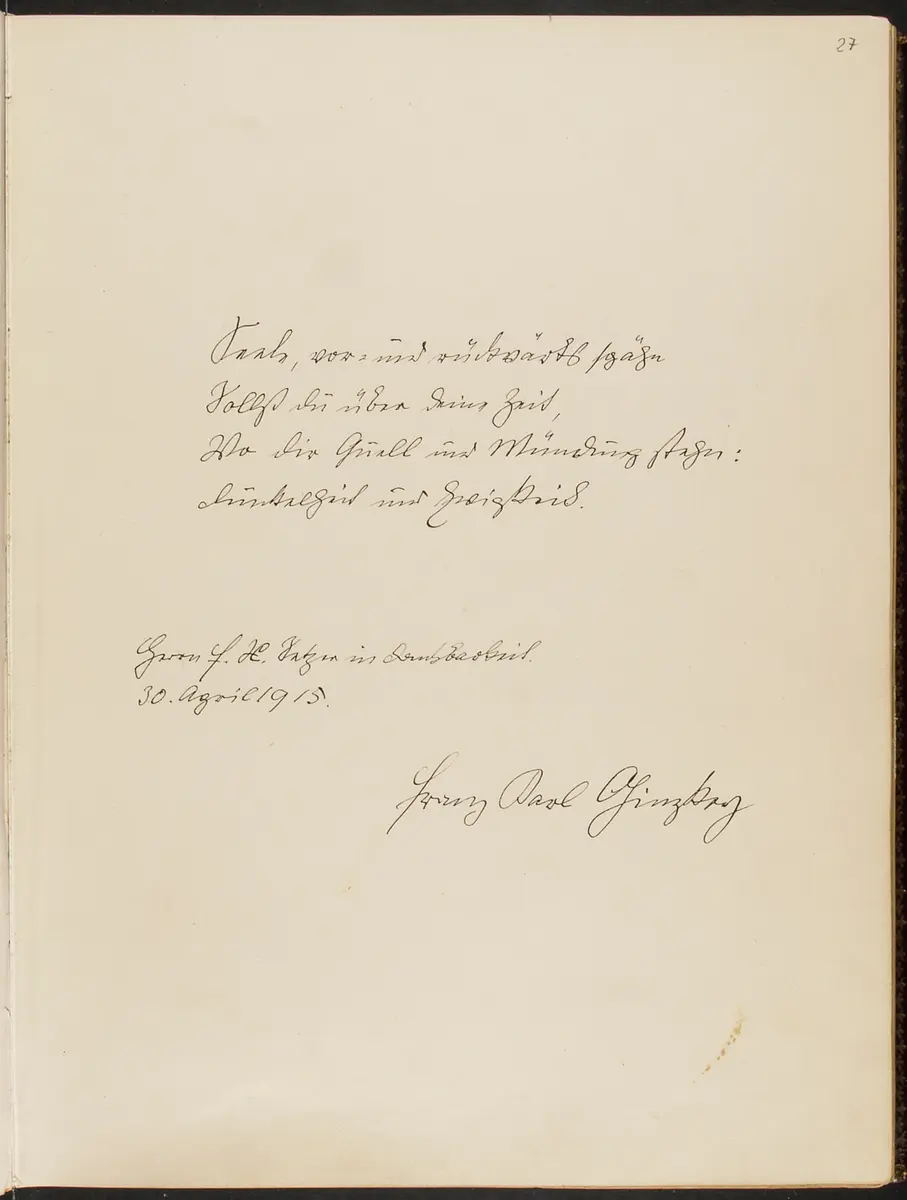 27
Seele, vor- und rückwärts spähn
Sollst du über deine Zeit,
Wo dir Quell und Mündung stehn:
Dunkelheit und Ewigkeit.
Herrn F. X. Setzer in Dankbarkeit.
30. April 1915.
Franz Karl Ginzkey